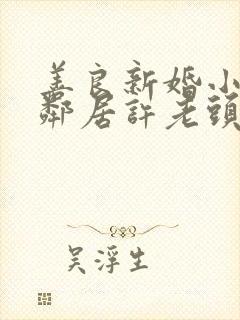 善良新婚小
鄰居許老頭
吴浮生